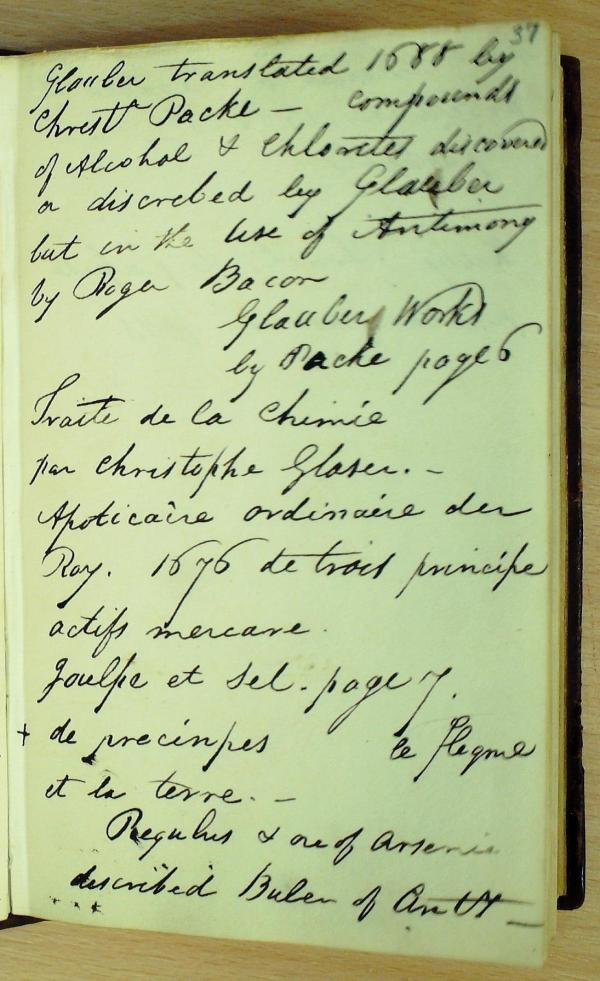 37
Glauber translated 1688 by
Christr Packe — compounds
of Alcohol & Chlorites discovered
or discrebed by Glauber
but in the Use of Antimony
by Roger Bacon
Glauber Works
by Packe page 6
Traite de la Chimie
par Christophe Glaser. –
Apoticaire ordinaire du
Roy. 1676 de trois principe
actifs mercure.
Soulfe et Sel. page 7.
+ de precinpes le flegme
et la terre. –
Regulus & of Arsenic
described of